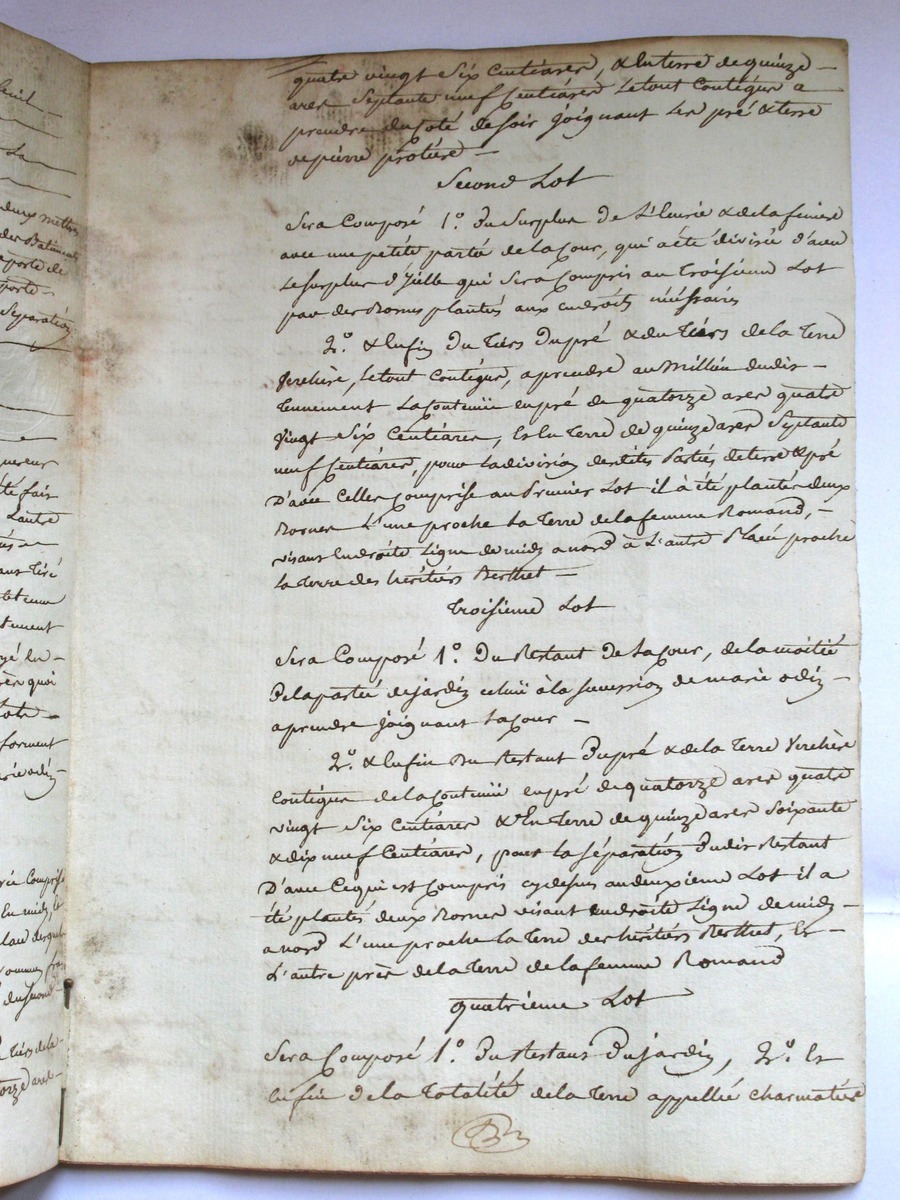 quatre vingt Six Centiares, & en terre de quinze –
ares Septante neuf Centiares Le tout Contigue a
prendre du Coté de Soir joignant Les pré & terre
de pierre protiere –
Second Lot
Sera Composé 1.º Du Surplus de L'Ecurie & de la feniere
avec une petite partie de la Cour, qui a été divisée d'avec
Le Surplus d'Icelle qui Sera Compris au Troisieme Lot
par des Bornes plantés aux endroits nécéssaires
2.º & Enfin du tiers du pré & du tiers de la Terre
Verchère, Le tout Contigue, a prendre au Millieu dudit –
Tennement La Contenüe en pré de quatorze ares quatre
vingt Six Centiares, Et En Terre de quinze ares Septante
neuf Centiares, pour La division desdites Parties de terre & pré
D'avec Celles Comprise au Premier Lot il à été plantés deux
Bornes L'une proche La Terre de la femme Romand, –
visans en droite Ligne de midy a nord à L'autre Placée proche
La Terre des héritiers Berthet –
Troisieme Lot
Sera Composé 1.º Du Restant de La Cour, de la moitié
De la partie de jardin échüe à la Succession de marie odin –
a prendre joignant La Cour –
2.º & Enfin Du Restant Du pré & de la Terre Verchère
Contigue de la Contenüe en pré de quatorze ares quatre
vingt Six Centiares & En Terre de quinze ares Soixante
& dix neuf Centiares, pour la Séparation Dudit Restant
D'avec Ce qui est Compris cy dessus au deuxieme Lot il a
été plantés deux Bornes visant en droite Ligne de midy –
a nord L'une proche la Terre des héritiers Berthet, Et –
L'autre près de la Terre de la femme Romand
Quatrieme Lot
Sera Composé 1.º Du Restant Du jardin, 2.º Et
Enfin de la Totalité de la Terre appellée